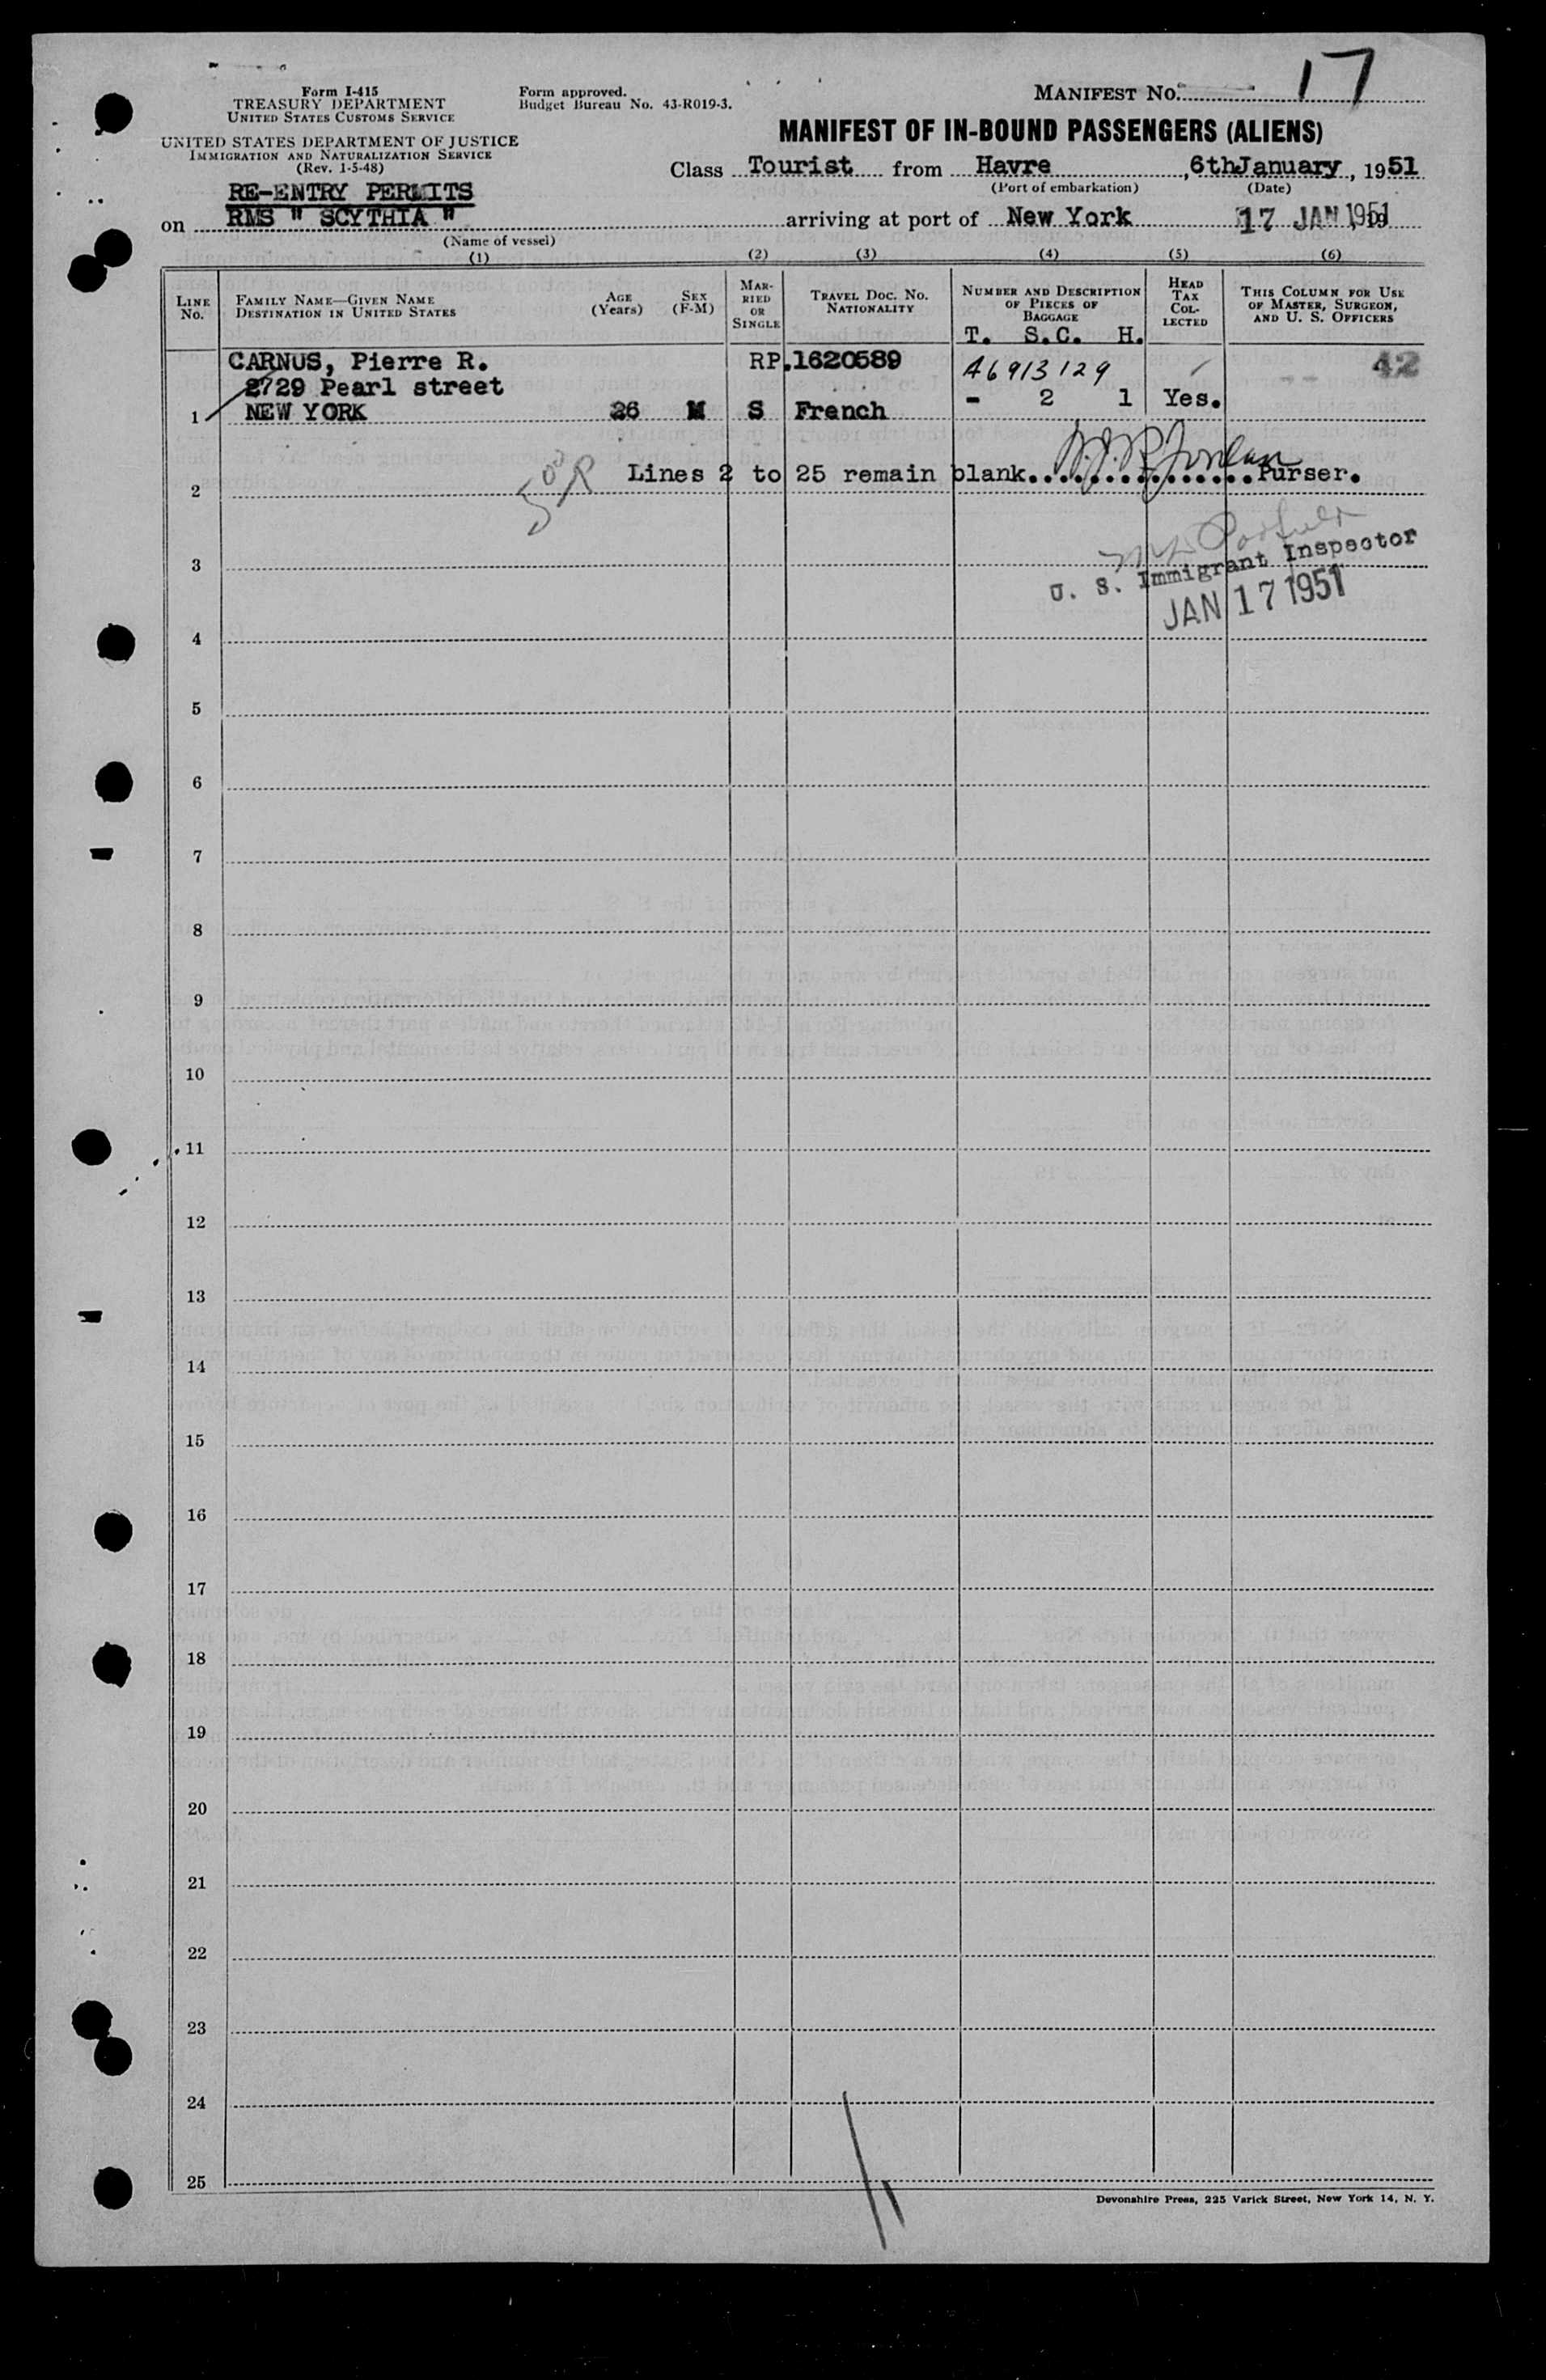 17
Form I-415
TREASURY DEPARTMENT
UNITED STATES CUSTOMS SERVICE
UNITED STATES DEPARTMENT OF JUSTICE
IMMIGRATION AND NATURALIZATION SERVICE
(Rev. 1-5-48)
Form approved.
Budget Bureau No. 43-R019-3.
MANIFEST NO.
MANIFEST OF IN-BOUND PASSENGERS (ALIENS)
Class Tourist from Havre, 6thJanuary, 1951
(Port of embarkation) (Date)
RE-ENTRY PERMITS
on RMS " SCYTHIA " arriving at port of New York 17 JAN 1951
(Name of vessel)
(1) (2) (3) (4) (5) (6)
LINE No.
FAMILY NAME—GIVEN NAME
DESTINATION IN UNITED STATES
AGE (Years)
SEX (F-M)
MARRIED OR SINGLE
TRAVEL DOC. NO.
NATIONALITY
NUMBER AND DESCRIPTION OF PIECES OF BAGGAGE
T. S.C. H.
HEAD TAX COLLECTED
THIS COLUMN FOR USE OF MASTER, SURGEON, AND U. S. OFFICERS
CARNUS, Pierre R. RP.1620589 A6913129 42
2729 Pearl street - 2 1 Yes.
1 NEW YORK 26 M S French
2 Lines 2 to 25 remain blank................Purser.
3
U. S. Immigrant Inspector
JAN 17 1951
4
5
6
7
8
9
10
11
12
13
14
15
16
17
18
19
20
21
22
23
24
25
Devonshire Press, 225 Varick Street, New York 14, N. Y.